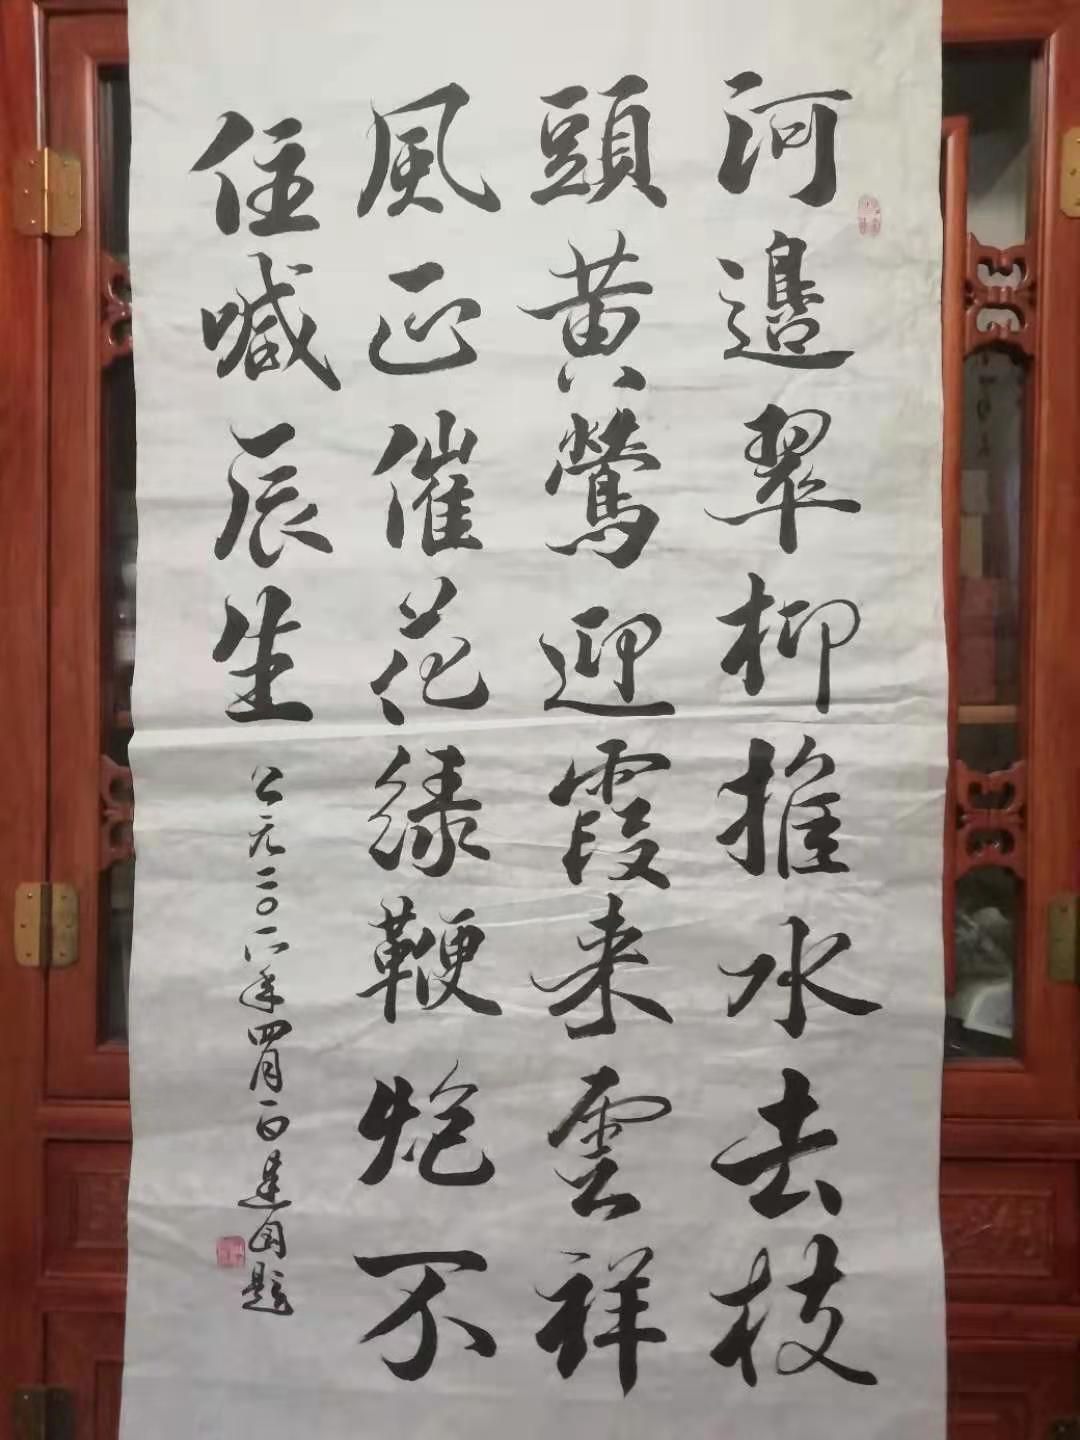 河邊翠柳推水去枝
頭黃鶯迎霞來雲祥
風正催花綠鞭炮不
住喊辰生
公元二〇一六年四月一日建国題